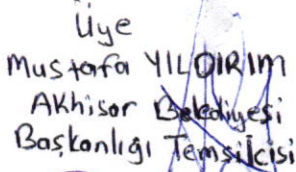 Üye
Mustafa YILDIRIM
Akhisar Belediyesi
Başkanlığı Temsilcisi